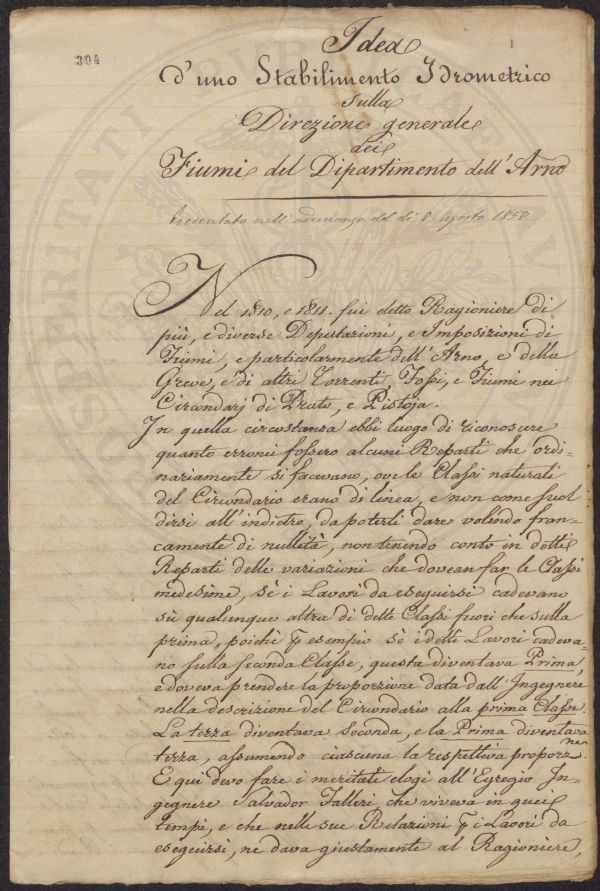 304
1
Idea
d'uno Stabilimento Idrometrico
sulla
Direzione generale
dei
Fiumi del Dipartimento dell'Arno
Presentata nell'adunanza del dì 8. Agosto 1858
Nel 1810, e 1811. fui detto Ragioniere di
più, e diverse Deputazioni, e Imposizioni di
Fiumi, e particolarmente dell'Arno, e della
Greve, e di altri Torrenti, Fossi, e Fiumi nei
Circondarj di Prato, e Pistoja.
In quella circostanza ebbi luogo di riconoscere
quanto erronei fossero alcuni Reparti che ordi=
nariamente si facevano, ove le Classi naturali
del Circondario erano di linea, e non come suol
dirsi all'indietro, da poterli dare volendo fran=
camente di nullità, non tenendo conto in detti
Reparti delle variazioni che dovean far le Classi
medesime, sè i Lavori da eseguirsi cadevano
sù qualunque altra di dette Classi fuori che sulla
prima, poichè p esempio sè i detti Lavori cadeva=
no sulla seconda Classe, questa diventava Prima,
e doveva prendere la proporzione data dall'Ingegnere
nella descrizione del Circondario alla prima Classe.
La terza diventava seconda, e la Prima diventava
terza, assumendo ciascuna la respettiva proporz.ne
E qui devo fare i meritati elogi all'Egregio In=
gegnere Salvador Falleri che viveva in quei
tempi, e che nelle sue Relazioni p i Lavori da
eseguirsi, ne dava giustamente al Ragioniere,